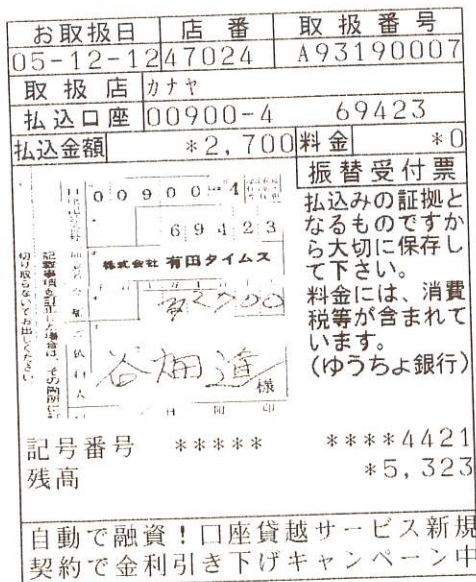 お取扱日 店番 取扱番号
05-12-12 47024 A93190007
取扱店 カナヤ
払込口座 00900-4 69423
払込金額 *2,700 料金 *0
振替受付票
払込みの証拠と
なるものですか
ら大切に保存し
て下さい。
料金には、消費
税等が含まれて
います。
(ゆうちょ銀行)
00900-4
69423
株式会社 有田タイムス
2700
様
日附印
記載事項を訂正した場合は、その箇所に
切り取らないでお出しください
記号番号 ***** ****4421
残高 *5,323
自動で融資!口座貸越サービス新規
契約で金利引き下げキャンペーン中